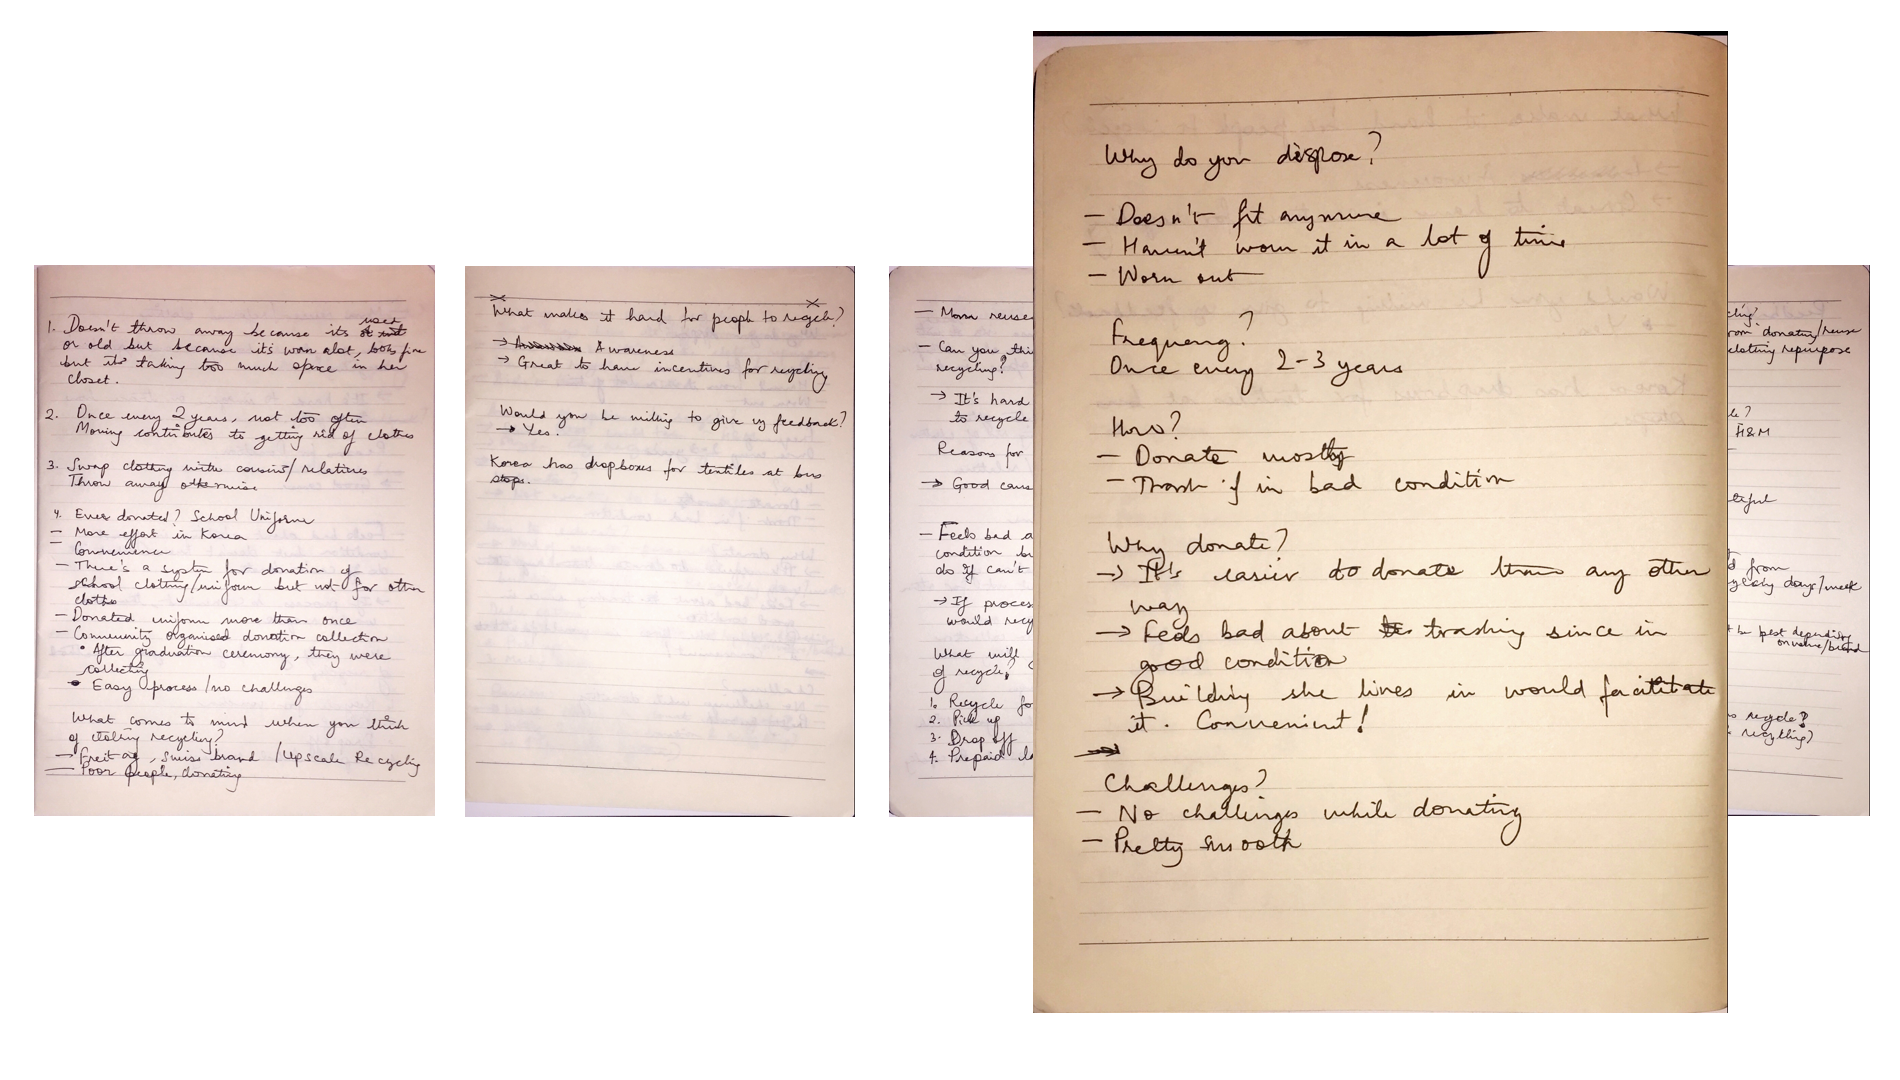 1. Doesn't throw away because its used
or old but because it's worn alot, looks fine
but it's taking too much space in her
closet.
2. Once every 2 years, not too often
Moving contributes to getting rid of clothes
3. Swap clothing with cousins/relatives
Throw away otherwise
4. Ever donated? School Uniform
- More effort in Korea
- Convenience
- There's a system for donation of
school clothing/uniform but not for other
clothes
- Donated uniform more than once
- Community organised donation collection
• After graduation ceremony, they were
collecting
• Easy process/no challenges
What comes to mind when you think
of clothing recycling?
→ Freitag, Swiss brand /Upscale Recycling
- Poor people, donating
What makes it hard for people to recycle?
→ Awareness
→ Great to have incentives for recycling
Would you be willing to give us feedback?
→ Yes.
Korea has dropboxes for textiles at bus
stops.
- Mom reuse
- Can you thi
recycling?
→ It's hard
to recycle
Reasons for
→ Good caus
- Feels bad a
condition bu
do if can't
→ If proces
would recy
What will
of recycle?
1. Recycle fo
2. Pick up
3. Drop off
4. Prepaid la
Why do you dispose?
- Doesn't fit anymore
- Haven't worn it in a lot of time
- Worn out
Frequency?
Once every 2-3 years
How?
- Donate mostly
- Trash if in bad condition
Why donate?
→ It's easier to donate than any other
way
→ Feels bad about trashing since in
good condition
→ Building she lives in would facilitate
it. Convenient!
Challenges?
- No challenges while donating
- Pretty smooth
cling?
rom donating/reuse
clothing repurpose
le?
H&M
teful
d from
days/week
t be best depending
on value/brand
recycle?
recycling?